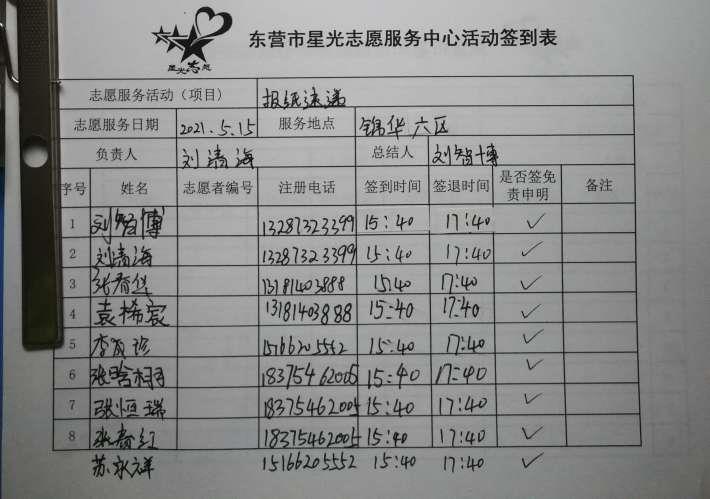 东营市星光志愿服务中心活动签到表
星光志愿
志愿服务活动（项目） 报纸速递
志愿服务日期 2021.5.15 服务地点 锦华六区
负责人 刘清海 总结人 刘智博
序号 姓名 志愿者编号 注册电话 签到时间 签退时间 是否签免责申明 备注
1 刘智博 13287323399 15:40 17:40 ✓
2 刘清海 13287323399 15:40 17:40 ✓
3 张春华 13181403888 15:40 17:40 ✓
4 袁梯宸 13181403888 15:40 17:40 ✓
5 15166205552 15:40 17:40 ✓
6 18375462005 15:40 17:40 ✓
7 张恒瑞 18375462005 15:40 17:40 ✓
8 张春红 18375462005 15:40 17:40 ✓
苏永祥 15166205552 15:40 17:40 ✓